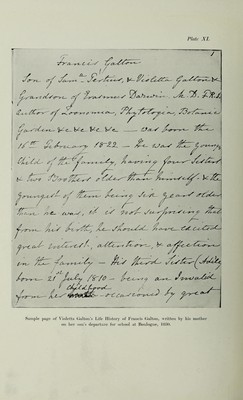 Plate XI.
1
Francis Galton
Son of Saml. Tertius, & Violetta Galton &
Grandson of Erasmus Darwin. M.D. F.R.S.
author of Zoonomia, Phytologia, Botanic
Garden &c &c &c &c — was born the
16th February 1822 — He was the young
Child of the family, having four Sisters
& two Brothers Elder than himself & the
youngest of them being six years older
than he was, it is not surprising that
from his birth, he should have excited
great interest, attention, & affection
in the family — His third Sister (Adèle
born 21st July 1810 — being an Invalid
from her childhood occasioned by great
Sample page of Violetta Galton's Life History of Francis Galton, written by his mother
on her son's departure for school at Boulogne, 1830.